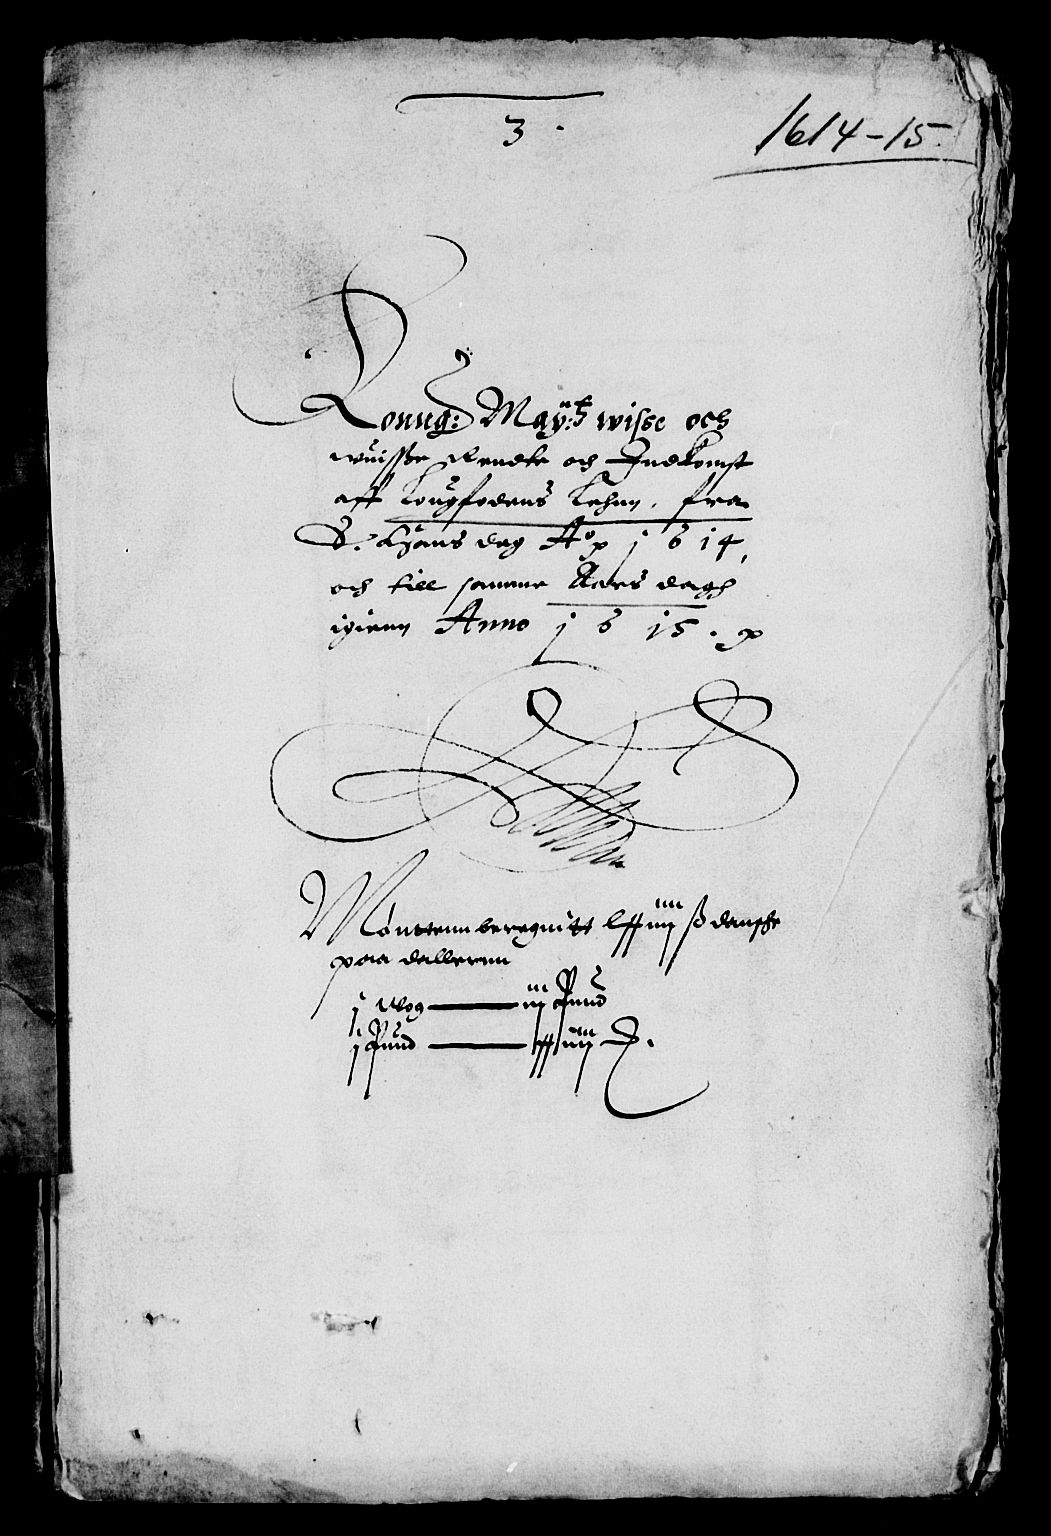 3.
1614-15.
Konng: May:tt wisse och
wuisse Rendte och Indkomst
aff Lougfodens Lehnn, fra
S. Hans dag Aº p 1614,
och till samme Aars dagh
igienn Anno 1615. p
Mønttenn beregnitt lxxiiij ß danske
paa dallerenn
j wog — iij Pund
j Pund — xxiiij